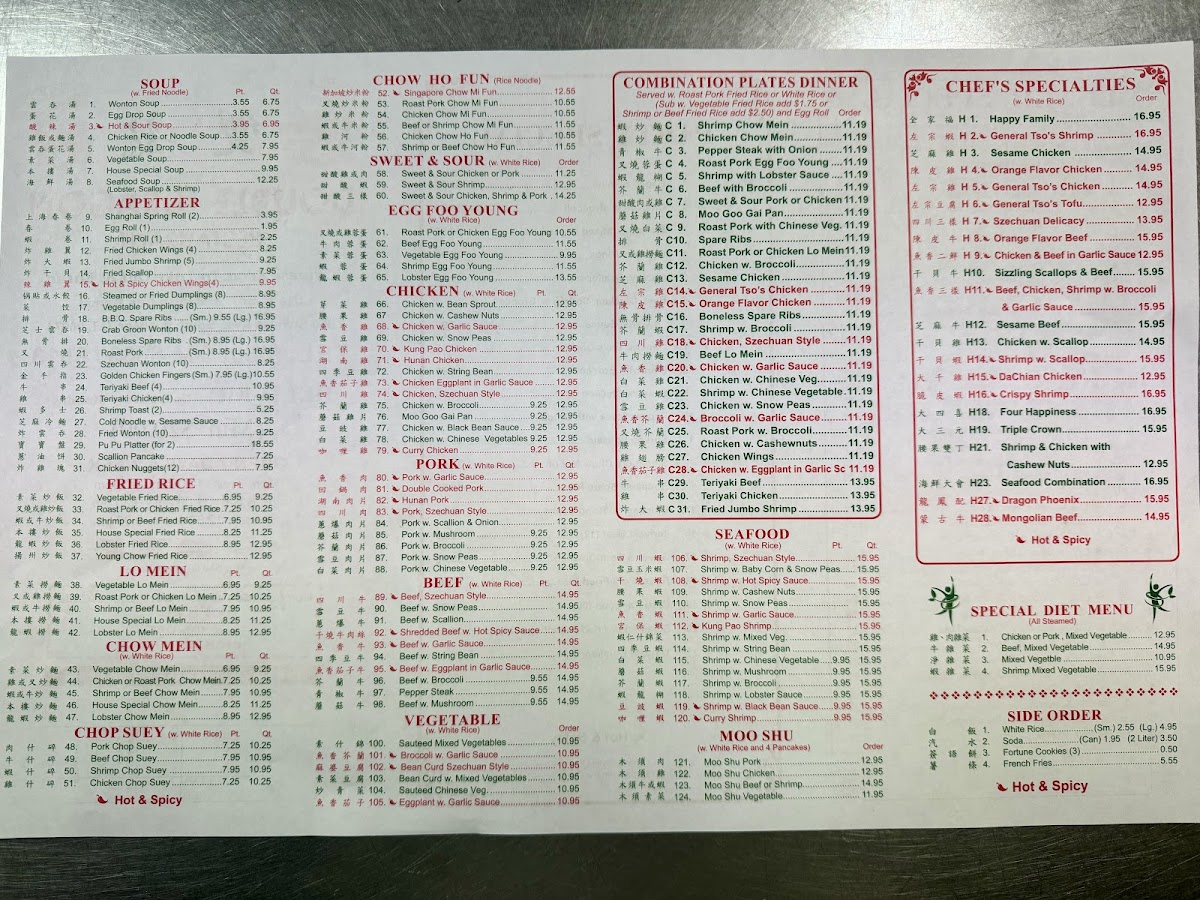 SOUP
(w. Fried Noodle) Pt. Qt.
雲吞湯 1. Wonton Soup 3.55 6.75
蛋花湯 2. Egg Drop Soup 3.55 6.75
酸辣湯 3. Hot & Sour Soup 3.95 6.95
雞飯或麵湯 4. Chicken Rice or Noodle Soup 3.55 6.75
雲吞蛋花湯 5. Wonton Egg Drop Soup 4.25 7.95
素菜湯 6. Vegetable Soup 7.95
本樓湯 7. House Special Soup 9.25
海鮮湯 8. Seafood Soup 12.25
(Lobster, Scallop & Shrimp)
APPETIZER
上海春卷 9. Shanghai Spring Roll (2) 3.95
春卷 10. Egg Roll (1) 1.95
蝦卷 11. Shrimp Roll (1) 2.25
炸雞翼 12. Fried Chicken Wings (4) 8.25
炸大蝦 13. Fried Jumbo Shrimp (5) 9.25
炸干貝 14. Fried Scallop 7.95
辣雞翼 15. Hot & Spicy Chicken Wings(4) 9.95
鍋貼或水餃 16. Steamed or Fried Dumplings (8) 8.95
菜餃 17. Vegetable Dumplings (8) 8.95
排骨 18. B.B.Q. Spare Ribs (Sm.) 9.55 (Lg.) 16.95
芝士雲吞 19. Crab Groon Wonton (10) 9.25
無骨排 20. Boneless Spare Ribs .(Sm.) 8.95 (Lg.) 16.95
叉燒 21. Roast Pork (Sm.) 8.95 (Lg.) 16.95
四川雲吞 22. Szechuan Wonton (10) 8.25
金手指 23. Golden Chicken Fingers (Sm.) 7.95 (Lg.)10.55
牛串 24. Teriyaki Beef (4) 10.95
雞串 25. Teriyaki Chicken(4) 9.95
蝦多士 26. Shrimp Toast (2) 5.25
芝麻冷麵 27. Cold Noodle w. Sesame Sauce 8.25
炸雲吞 28. Fried Wonton (10) 9.25
寶寶盤 29. Pu Pu Platter (for 2) 18.55
蔥油餅 30. Scallion Pancake 7.25
炸雞塊 31. Chicken Nuggets(12) 7.95
FRIED RICE Pt. Qt.
素菜炒飯 32. Vegetable Fried Rice 6.95 9.25
叉燒或雞炒飯 33. Roast Pork or Chicken Fried Rice 7.25 10.25
蝦或牛炒飯 34. Shrimp or Beef Fried Rice 7.95 10.95
本樓炒飯 35. House Special Fried Rice 8.25 11.25
龍蝦炒飯 36. Lobster Fried Rice 8.95 12.95
揚州炒飯 37. Young Chow Fried Rice 12.95
LO MEIN Pt. Qt.
素菜撈麵 38. Vegetable Lo Mein 6.95 9.25
叉或雞撈麵 39. Roast Pork or Chicken Lo Mein 7.25 10.25
蝦或牛撈麵 40. Shrimp or Beef Lo Mein 7.95 10.95
本樓撈麵 41. House Special Lo Mein 8.25 11.25
龍蝦撈麵 42. Lobster Lo Mein 8.95 12.95
CHOW MEIN
(w. White Rice) Pt. Qt.
素菜炒麵 43. Vegetable Chow Mein 6.95 9.25
雞或叉炒麵 44. Chicken or Roast Pork Chow Mein 7.25 10.25
蝦或牛炒麵 45. Shrimp or Beef Chow Mein 7.95 10.95
本樓炒麵 46. House Special Chow Mein 8.25 11.25
龍蝦炒麵 47. Lobster Chow Mein 8.95 12.95
CHOP SUEY (w. White Rice) Pt. Qt.
肉什碎 48. Pork Chop Suey 7.25 10.25
牛什碎 49. Beef Chop Suey 7.95 10.95
蝦什碎 50. Shrimp Chop Suey 7.95 10.95
雞什碎 51. Chicken Chop Suey 7.25 10.25
Hot & Spicy
CHOW HO FUN (Rice Noodle)
新加坡炒米粉 52. Singapore Chow Mi Fun 12.55
叉燒炒米粉 53. Roast Pork Chow Mi Fun 10.55
雞炒米粉 54. Chicken Chow Mi Fun 10.55
蝦或牛米粉 55. Beef or Shrimp Chow Mi Fun 11.55
雞河粉 56. Chicken Chow Ho Fun 10.55
蝦或牛河粉 57. Shrimp or Beef Chow Ho Fun 11.55
SWEET & SOUR (w. White Rice) Order
甜酸雞或肉 58. Sweet & Sour Chicken or Pork 11.25
甜酸蝦 59. Sweet & Sour Shrimp 12.95
甜酸三樣 60. Sweet & Sour Chicken, Shrimp & Pork 14.25
EGG FOO YOUNG
(w. White Rice) Order
叉燒或雞蓉蛋 61. Roast Pork or Chicken Egg Foo Young 10.55
牛肉蓉蛋 62. Beef Egg Foo Young 11.55
素菜蓉蛋 63. Vegetable Egg Foo Young 9.95
蝦蓉蛋 64. Shrimp Egg Foo Young 11.55
龍蝦蓉蛋 65. Lobster Egg Foo Young 13.55
CHICKEN (w. White Rice) Pt. Qt.
芽菜雞 66. Chicken w. Bean Sprout 12.95
腰果雞 67. Chicken w. Cashew Nuts 12.95
魚香雞 68. Chicken w. Garlic Sauce 12.95
雪豆雞 69. Chicken w. Snow Peas 12.95
宮保雞 70. Kung Pao Chicken 12.95
湖南雞 71. Hunan Chicken 12.95
四季豆雞 72. Chicken w. String Bean 12.95
魚香茄子雞 73. Chicken Eggplant w. Garlic Sauce 12.95
四川雞 74. Chicken, Szechuan Style 12.95
芥蘭雞 75. Chicken w. Broccoli 9.25 12.95
蘑菇雞片 76. Moo Goo Gai Pan 9.25 12.95
豆豉雞 77. Chicken w. Black Bean Sauce 9.25 12.95
白菜雞 78. Chicken w. Chinese Vegetables 9.25 12.95
咖喱雞 79. Curry Chicken 9.25 12.95
PORK (w. White Rice) Pt. Qt.
魚香肉 80. Pork w. Garlic Sauce 12.95
回鍋肉 81. Double Cooked Pork 12.95
湖南肉片 82. Hunan Pork 12.95
四川肉 83. Pork, Szechuan Style 12.95
蔥爆肉片 84. Pork w. Scallion & Onion 12.95
蘑菇肉片 85. Pork w. Mushroom 9.25 12.95
芥蘭肉片 86. Pork w. Broccoli 9.25 12.95
雪豆肉片 87. Pork w. Snow Peas 9.25 12.95
白菜肉片 88. Pork w. Chinese Vegetable 9.25 12.95
BEEF (w. White Rice) Pt. Qt.
四川牛 89. Beef, Szechuan Style 14.95
雪豆牛 90. Beef w. Snow Peas 14.95
蔥爆牛 91. Beef w. Scallion 14.95
干燒牛肉絲 92. Shredded Beef w. Hot Spicy Sauce 14.95
魚香牛 93. Beef w. Garlic Sauce 14.95
四季豆牛 94. Beef w. String Bean 14.95
魚香茄子牛 95. Beef w. Eggplant in Garlic Sauce 14.95
芥蘭牛 96. Beef w. Broccoli 9.55 14.95
青椒牛 97. Pepper Steak 9.55 14.95
蘑菇牛 98. Beef w. Mushroom 9.55 14.95
VEGETABLE
(w. White Rice) Order
素什錦 100. Sauteed Mixed Vegetables 10.95
魚香芥蘭 101. Broccoli w. Garlic Sauce 10.95
麻婆豆腐 102. Bean Curd Szechuan Style 10.95
素菜豆腐 103. Bean Curd w. Mixed Vegetables 10.95
炒青菜 104. Sauteed Chinese Veg. 10.95
魚香茄子 105. Eggplant w. Garlic Sauce 10.95
COMBINATION PLATES DINNER
Served w. Roast Pork Fried Rice or White Rice or
(Sub w. Vegetable Fried Rice add $1.75 or
Shrimp or Beef Fried Rice add $2.50) and Egg Roll Order
蝦炒麵 C 1. Shrimp Chow Mein 11.19
雞炒麵 C 2. Chicken Chow Mein 11.19
青椒牛 C 3. Pepper Steak with Onion 11.19
叉燒蓉蛋 C 4. Roast Pork Egg Foo Young 11.19
蝦龍糊 C 5. Shrimp with Lobster Sauce 11.19
芥蘭牛 C 6. Beef with Broccoli 11.19
甜酸肉或雞 C 7. Sweet & Sour Pork or Chicken 11.19
蘑菇雞片 C 8. Moo Goo Gai Pan 11.19
叉燒白菜 C 9. Roast Pork with Chinese Veg. 11.19
排骨 C10. Spare Ribs 11.19
叉或雞撈麵 C11. Roast Pork or Chicken Lo Mein 11.19
芥蘭雞 C12. Chicken w. Broccoli 11.19
芝麻雞 C13. Sesame Chicken 11.19
左宗雞 C14. General Tso's Chicken 11.19
陳皮雞 C15. Orange Flavor Chicken 11.19
無骨排骨 C16. Boneless Spare Ribs 11.19
芥蘭蝦 C17. Shrimp w. Broccoli 11.19
四川雞 C18. Chicken, Szechuan Style 11.19
牛肉撈麵 C19. Beef Lo Mein 11.19
魚香雞 C20. Chicken w. Garlic Sauce 11.19
白菜雞 C21. Chicken w. Chinese Veg. 11.19
白菜蝦 C22. Shrimp w. Chinese Vegetable 11.19
雪豆雞 C23. Chicken w. Snow Peas 11.19
魚香芥蘭 C24. Broccoli w. Garlic Sauce 11.19
叉燒芥蘭 C25. Roast Pork w. Broccoli 11.19
腰果雞 C26. Chicken w. Cashewnuts 11.19
雞翅膀 C27. Chicken Wings 11.19
魚香茄子雞 C28. Chicken w. Eggplant in Garlic Sc 11.19
牛串 C29. Teriyaki Beef 13.95
雞串 C30. Teriyaki Chicken 13.95
炸大蝦 C 31. Fried Jumbo Shrimp 13.95
SEAFOOD
(w. White Rice) Pt. Qt.
四川蝦 106. Shrimp, Szechuan Style 15.95
雪豆玉米蝦 107. Shrimp w. Baby Corn & Snow Peas 15.95
干燒蝦 108. Shrimp w. Hot Spicy Sauce 15.95
腰果蝦 109. Shrimp w. Cashew Nuts 15.95
雪豆蝦 110. Shrimp w. Snow Peas 15.95
魚香蝦 111. Shrimp w. Garlic Sauce 15.95
宮保蝦 112. Kung Pao Shrimp 15.95
蝦仁什錦菜 113. Shrimp w. Mixed Veg. 15.95
四季豆蝦 114. Shrimp w. String Bean 15.95
白菜蝦 115. Shrimp w. Chinese Vegetable 9.95 15.95
蘑菇蝦 116. Shrimp w. Mushroom 9.95 15.95
芥蘭蝦 117. Shrimp w. Broccoli 9.95 15.95
蝦龍糊 118. Shrimp w. Lobster Sauce 9.95 15.95
豆豉蝦 119. Shrimp w. Black Bean Sauce 9.95 15.95
咖喱蝦 120. Curry Shrimp 9.95 15.95
MOO SHU
(w. White Rice and 4 Pancakes) Order
木須肉 121. Moo Shu Pork 12.95
木須雞 122. Moo Shu Chicken 12.95
木須牛或蝦 123. Moo Shu Beef or Shrimp 14.95
木須素菜 124. Moo Shu Vegetable 11.95
CHEF'S SPECIALTIES
(w. White Rice) Order
全家福 H 1. Happy Family 16.95
左宗蝦 H 2. General Tso's Shrimp 16.95
芝麻雞 H 3. Sesame Chicken 14.95
陳皮雞 H 4. Orange Flavor Chicken 14.95
左宗雞 H 5. General Tso's Chicken 14.95
左宗豆腐 H 6. General Tso's Tofu 12.95
四川三樣 H 7. Szechuan Delicacy 13.95
陳皮牛 H 8. Orange Flavor Beef 15.95
魚香二鮮 H 9. Chicken & Beef in Garlic Sauce 12.95
干貝牛 H10. Sizzling Scallops & Beef 15.95
魚香三樣 H11. Beef, Chicken, Shrimp w. Broccoli
& Garlic Sauce 15.95
芝麻牛 H12. Sesame Beef 15.95
干貝雞 H13. Chicken w. Scallop 14.95
干貝蝦 H14. Shrimp w. Scallop 15.95
大千雞 H15. DaChian Chicken 12.95
脆皮蝦 H16. Crispy Shrimp 16.95
大四喜 H18. Four Happiness 16.95
大三元 H19. Triple Crown 15.95
腰果雙丁 H21. Shrimp & Chicken with
Cashew Nuts 12.95
海鮮大會 H23. Seafood Combination 16.95
龍鳳配 H27. Dragon Phoenix 15.95
蒙古牛 H28. Mongolian Beef 14.95
Hot & Spicy
SPECIAL DIET MENU
(All Steamed)
雞、肉雜菜 1. Chicken or Pork , Mixed Vegetable 12.95
牛雜菜 2. Beef, Mixed Vegetable 14.95
淨雜菜 3. Mixed Vegetble 10.95
蝦雜菜 4. Shrimp Mixed Vegetable 15.95
SIDE ORDER
白飯 1. White Rice (Sm.) 2.55 (Lg.) 4.95
汽水 2. Soda (Can) 1.95 (2 Liter) 3.50
簽語餅 3. Fortune Cookies (3) 0.50
薯條 4. French Fries 5.55
Hot & Spicy